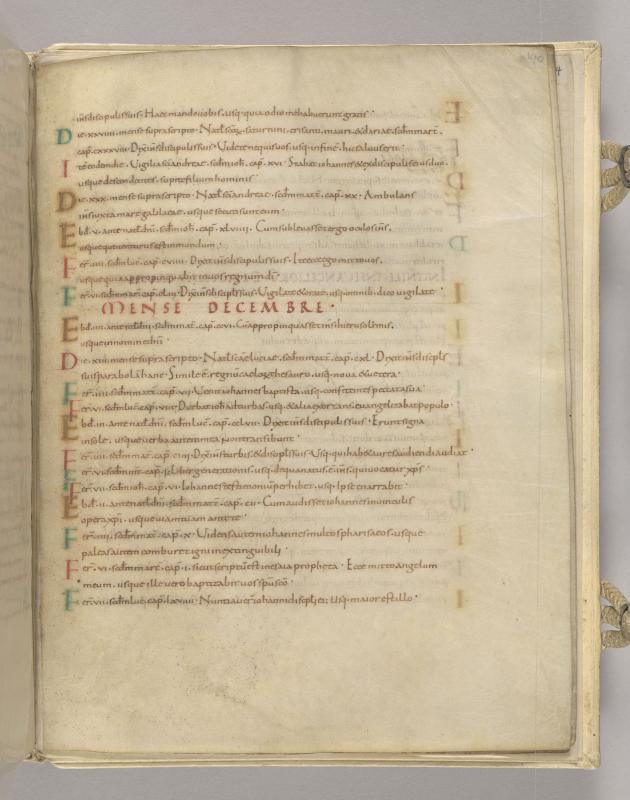 ihs discipulis suis · Haec mando vobis · usq · quia odio me habuerunt gratis ·
Die · xxviiii · mense suprascripto · Natl · scōr · saturnini · crisanti · mauri · & dariae · sedm matt ·
cap · cxxxviii · Dxit ihs discipulis suis · Videte ne quis vos · usq · in finē · hic salvus erit ·
Itē eodem die · Vigilia sci andreae · sedm ioh · cap · xvi · Stabat iohannes & ex discipulis eius duo ·
usque descendentes · supra filium hominis ·
Die · xxx · mense suprascripto · Natl · sci andreae · sedm matt · cap · xx · Ambulans
ihs iuxta mare galilaeae · usque secuti sunt eum ·
Ebd · v · ante natl · dni · sedm ioh · cap · xlviiii · Cum sublevasset ergo oculos ihs ·
usque qui venturus est in mundum ·
Fer · iiii · sedm luc · cap · cviiii · Dxit ihs discipulis suis · Ite ecce ego mitto vos ·
usque quia appropinquabit in vos regnum di ·
Fer · vi · sedm marc · cap · clviii · Dxit ihs discipulis suis · Vigilate & orate · usq · omnib · dico vigilate ·
MENSE DECEMBRE ·
Ebd · iiii · ante natl · dni · sedm matt · cap · ccvi · Cum appropinquasset ihs hierusolimis ·
usque in nomine dni
Die · xiii · mense suprascripto · Natl · scae luciae · sedm matt · cap · cxl · Dxit ihs discipls
suis parabolā hanc · Simile ē · regnū caeloꝝ thesauro · usq · nova & vetera ·
Fer · iiii · sedm matt · cap · vii · Venit iohannes baptista · usq · confitentes peccata sua
Fer · vi · sedm luc · cap · viii · Dicebat ioh ad turbas · usq · & alia exortans · evangelizabat populo ·
Ebd · iii · ante natl · dni · sedm luc · cap · cclvii · Dxit ihs discipulis suis · Erunt signa
in sole · usque verba autem mea non transibunt ·
Fer · iiii · sedm mat · cap · ciii · Dxit ihs turbis · & discipls suis · Usq · qui hab& aures audiendi audiat ·
Fer · vi · sedm mt · cap · i · Liber generationis · usq · de qua natus · ē · ihs · qui vocatur xps
Fer · vii · sedm ioh · cap · vi · Iohannes testimonium perhibet · usq · Ipse enarrabit ·
Ebd · ii · ante natl · dni · sedm matt · cap · cii · Cum audisset iohannes in vinculis
opera xpi · usque viam tuam ante te ·
Fer · iiii · sedm mat · cap · x · Videns autem iohannes multos pharisaeos · usque
paleas autem comburet igni inextinguibili ·
Fer · vi · sedm marc · cap · i · sicut scriptū est in esaia propheta · Ecce mitto angelum
meum · usque ille vero baptizabit vos spu sco ·
Fer · vii · sedm luc · cap · lxviiii · Nuntiaver iohanni discipl ei · usq · maior est illo ·